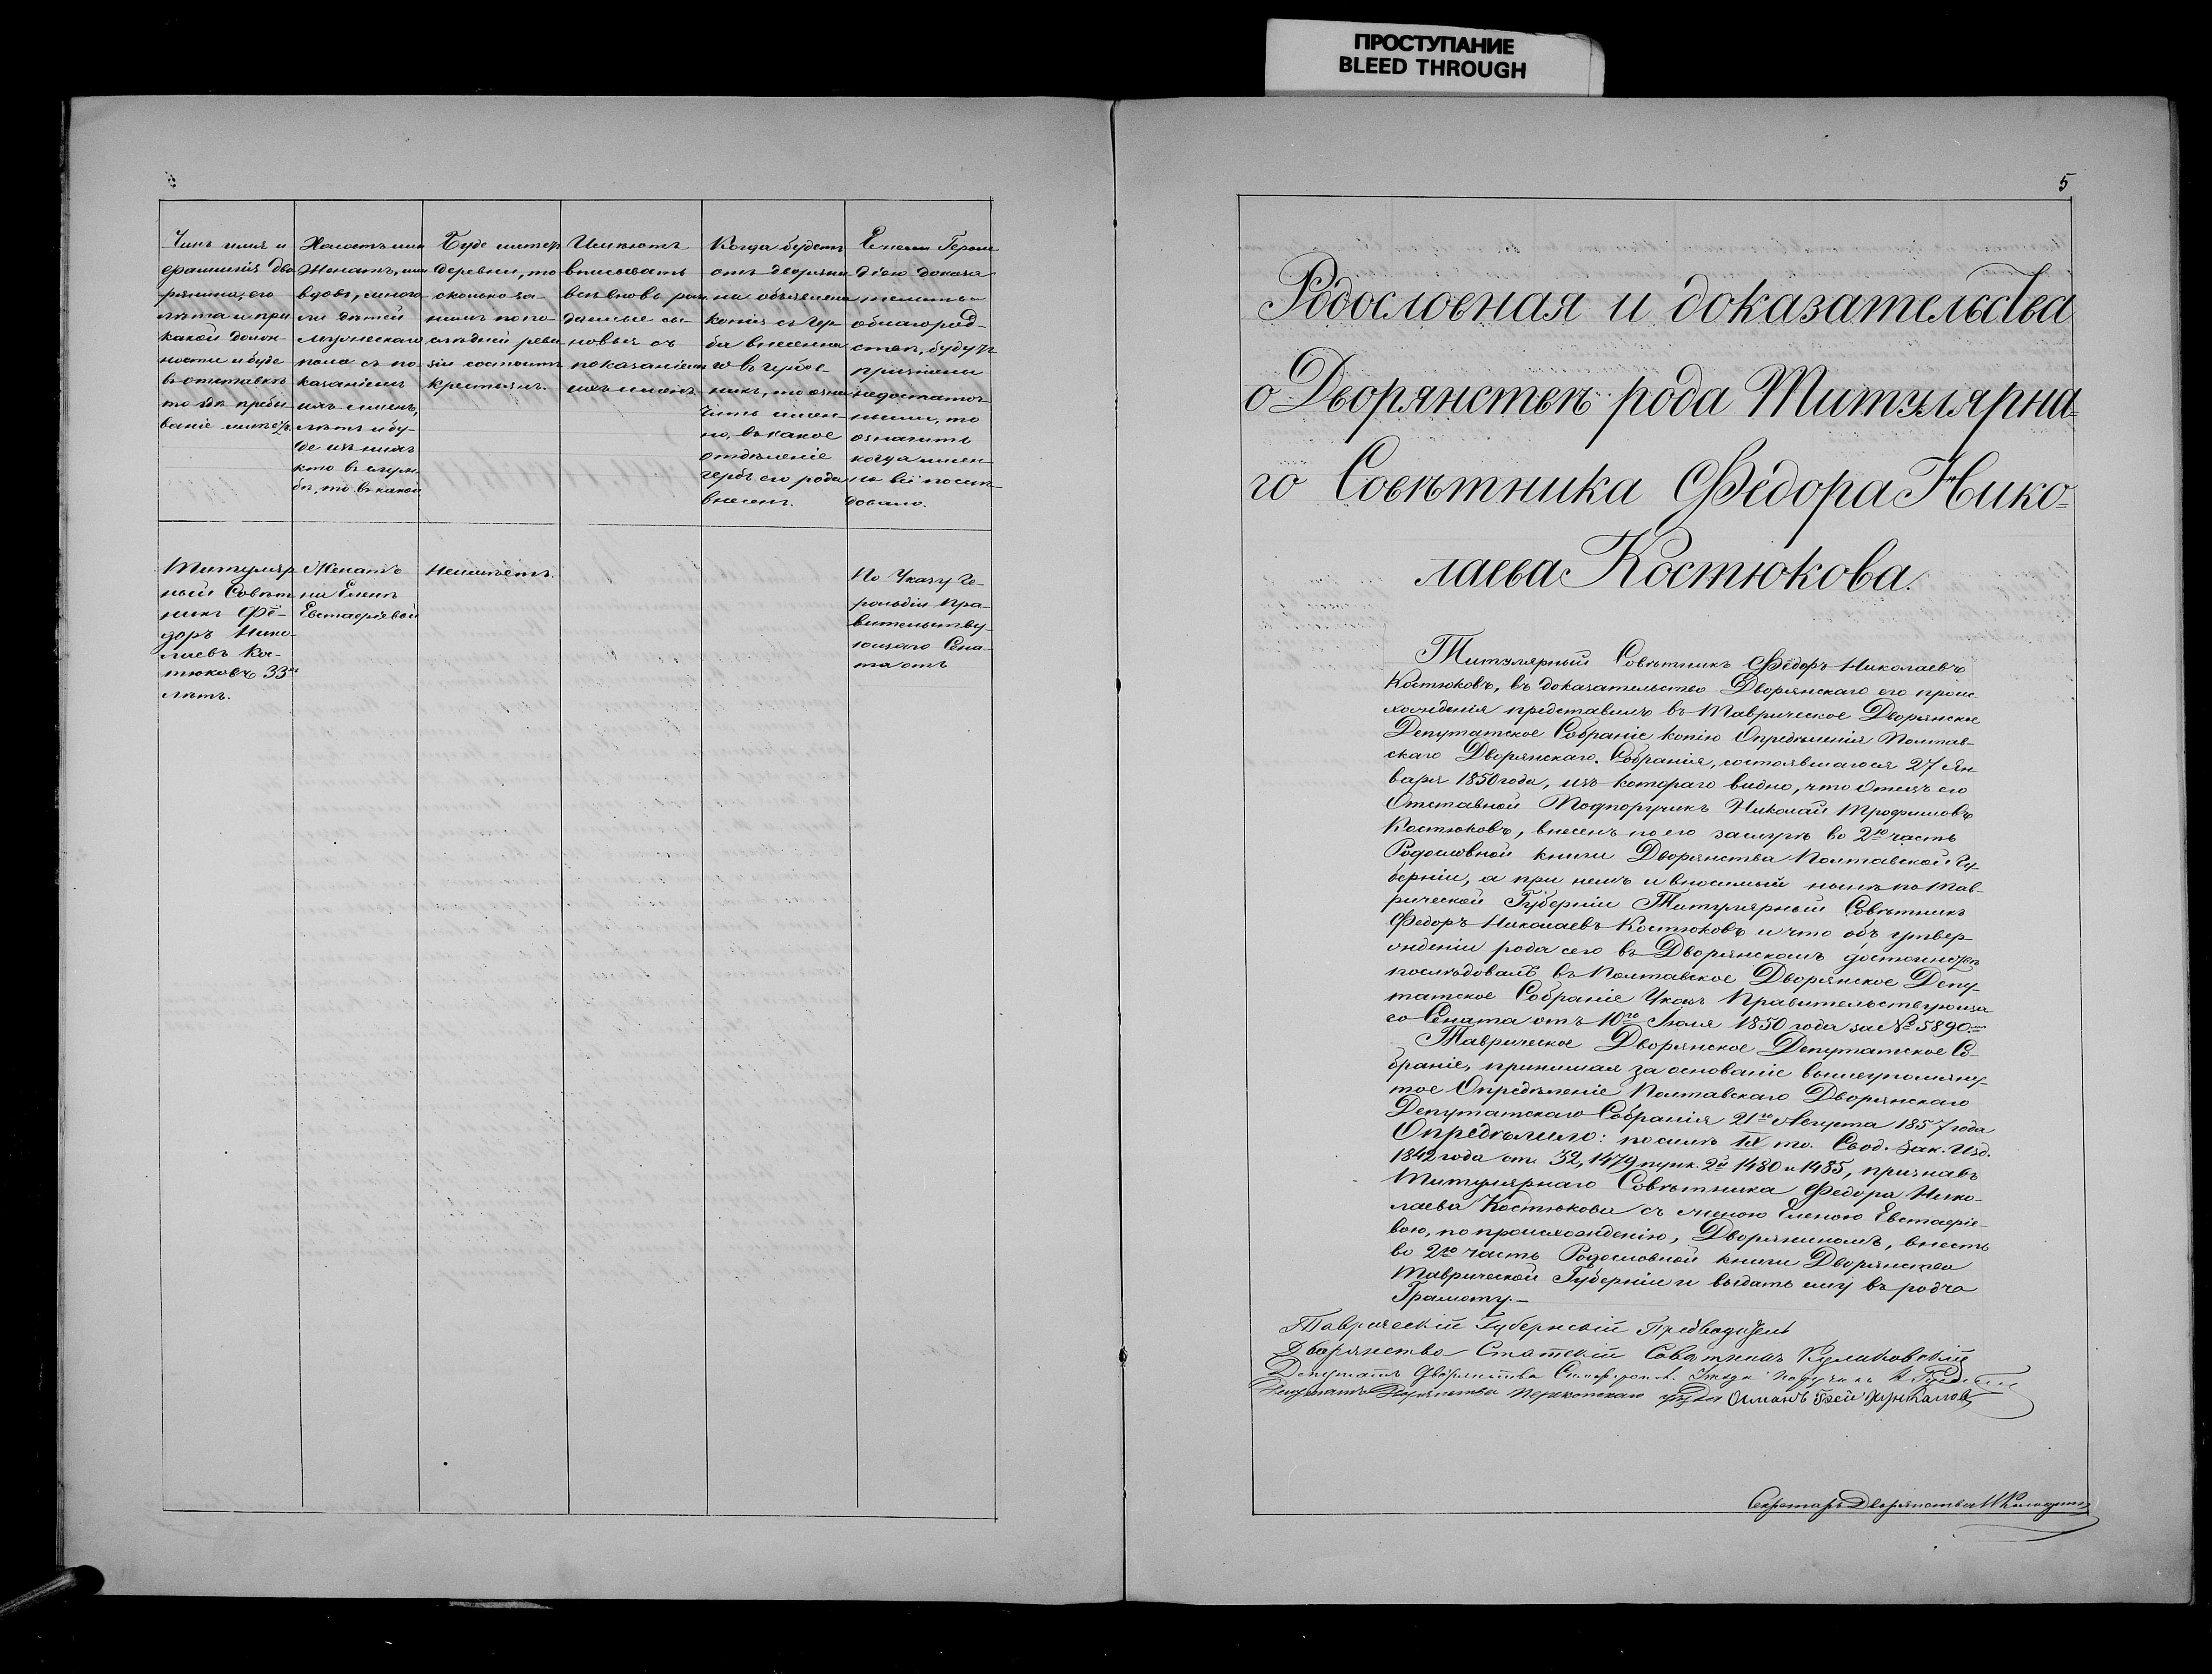 ПРОСТУПАНИЕ
BLEED THROUGH
Чинъ имя и
фамилія дво
рянина, его
лѣта и при
какой долж-
ности и буде
въ отставкѣ
то гдѣ пребы
ваніе имѣетъ.
Холостъ или
Женатъ, или
вдовъ, много
ли дѣтей
мужескаго
пола съ по
казаніемъ
ихъ именъ,
лѣтъ и бу-
де изъ нихъ
кто въ служ
бѣ, то въ какой
Буде имѣетъ
деревни, то
сколько за
нимъ по по-
слѣдней реви
зіи состоитъ
крестьянъ.
Имѣютъ
вписывать
всѣ вновь рож
денные сы-
новья съ
показаніемъ
ихъ именъ.
Когда будетъ
отъ дворяни
на объявлена
копія съ Гер-
ба внесенна
го въ гербов-
никъ, то озна
чить имен-
но, въ какое
отдѣленіе
гербъ его рода
внесенъ.
Ежели Героль
діею доказа
тельства
облагород-
ствѣ, будутъ
признаны
недостаточ-
ными, то
означить
когда имен-
но всё послѣ-
довало.
Титуляр
ный Совѣт
никъ Фё-
доръ Нико-
лаевъ Кос-
тюковъ 33
лѣтъ.
Женатъ
на Еленѣ
Евстафіевой
Неимѣетъ.
По Указу Ге-
рольдіи Пра-
вительству-
ющаго Сена-
та отъ
5
Родословная и доказательства
о Дворянствѣ рода Титулярна-
го Совѣтника Фёдора Нико-
лаева Костюкова.
Титулярный Совѣтникъ Фёдоръ Николаевъ
Костюковъ, въ доказательство Дворянскаго его проис
хожденія представилъ въ Таврическое Дворянское
Депутатское Собраніе копію Опредѣленія Полтав-
скаго Дворянскаго Собранія, состоявшагося 27 Ян-
варя 1850 года, изъ котораго видно, что Отецъ его
Отставной Подпоручикъ Николай Трофимовъ
Костюковъ, внесенъ по его заслугѣ во 2ю часть
Родословной книги Дворянства Полтавской Гу-
берніи, а при немъ и вносимый нынѣ по Тав-
рической Губерніи Титулярный Совѣтникъ
Федоръ Николаевъ Костюковъ и что объ утвер-
жденіи рода сего въ Дворянскомъ достоинствѣ
послѣдовалъ въ Полтавское Дворянское Депу-
татское Собраніе Указъ Правительствующа
го Сената отъ 10го Іюля 1850 года за № 5890.мъ
Таврическое Дворянское Депутатское Со-
браніе, принимая за основаніе вышеупомяну-
тое Опредѣленіе Полтавскаго Дворянскаго
Депутатскаго Собранія 21го Августа 1857 года
Опредѣлило: по силѣ IX то. Свод. Зак. Изд.
1842 года ст. 32, 1479 пунк. 2й 1480 и 1485, признавъ
Титулярнаго Совѣтника Федора Нико-
лаева Костюкова съ женою Еленою Евстафіе-
вою, по происхожденію, Дворяниномъ, внесть
во 2ю часть Родословной книги Дворянства
Таврической Губерніи и выдать ему въ родъ
Грамоту.—
Таврическій Губернскій Предводитель
Дворянства Статскій Совѣтникъ Куликовскій
Депутатъ Дворянства Симфероп. Уѣзда Поручикъ
Депутатъ Дворянства Перекопскаго уѣзда Османъ Бей
Секретарь Дворянства